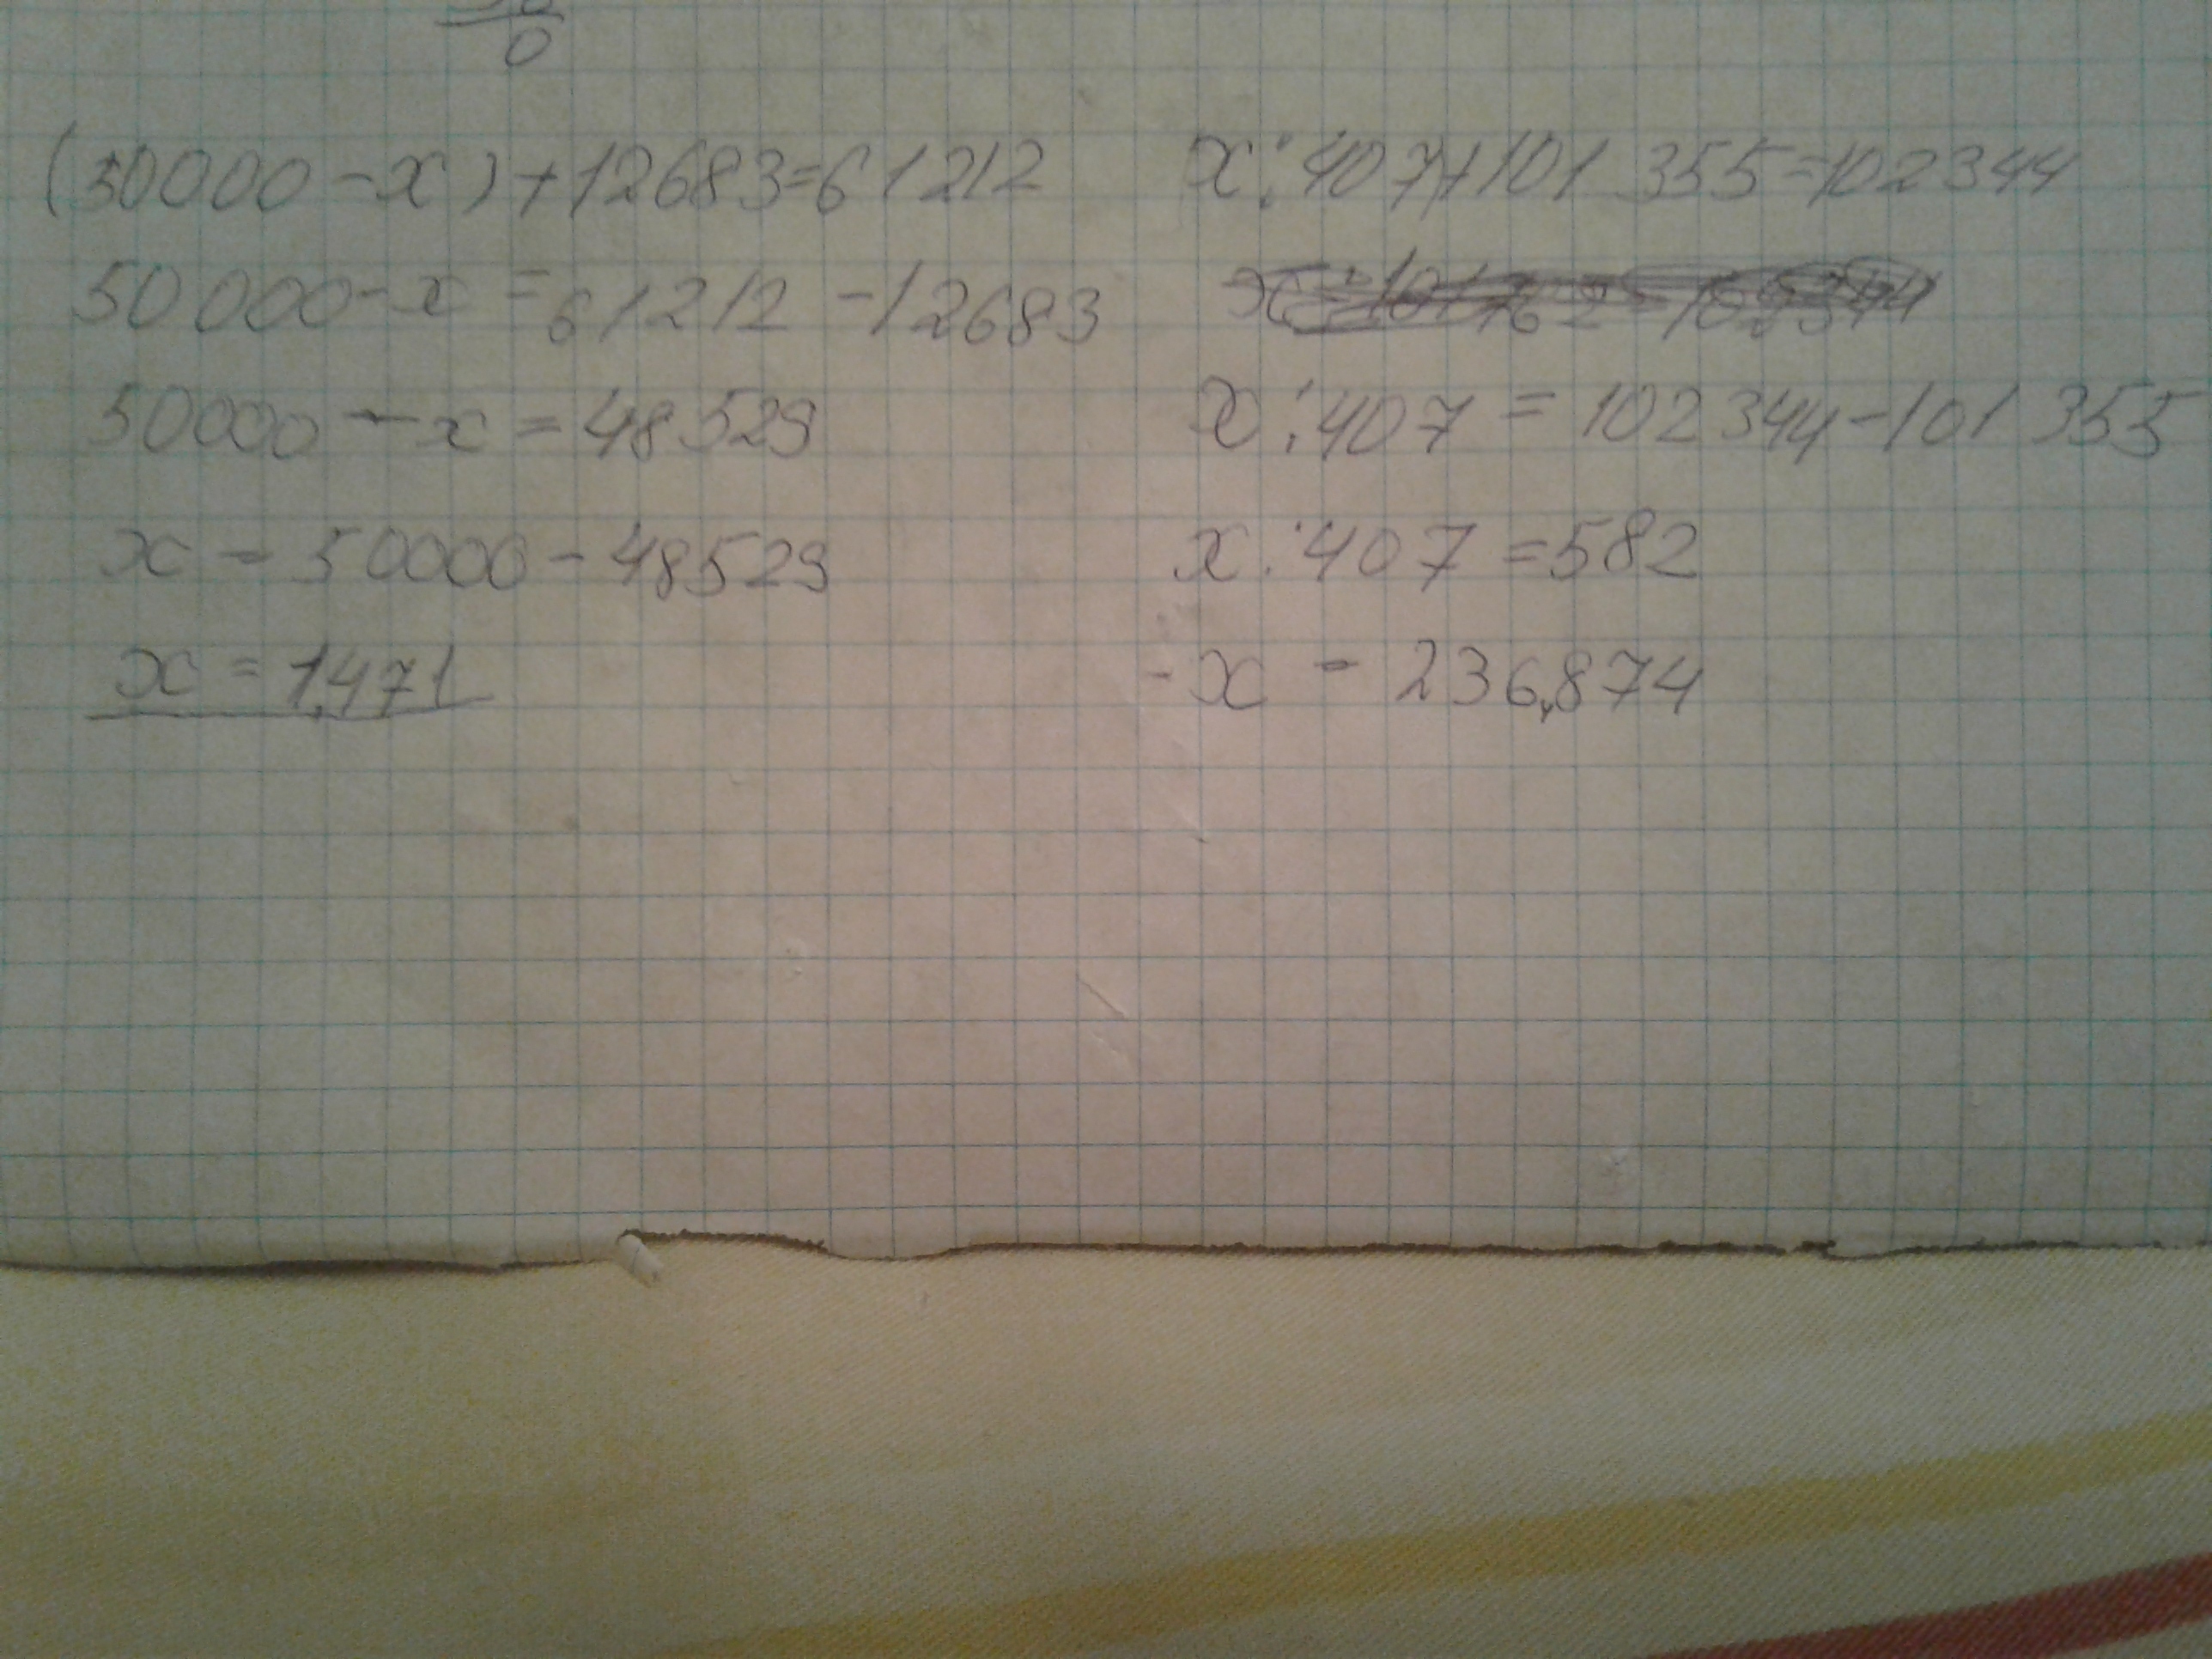 0
(50000-x)+12683=61212
50000-x=61212-12683
50000-x=48529
x=50000-48529
x=1,471
x:407+101 355=102344
x:407=102344-101 355
x:407=582
-x=236,874